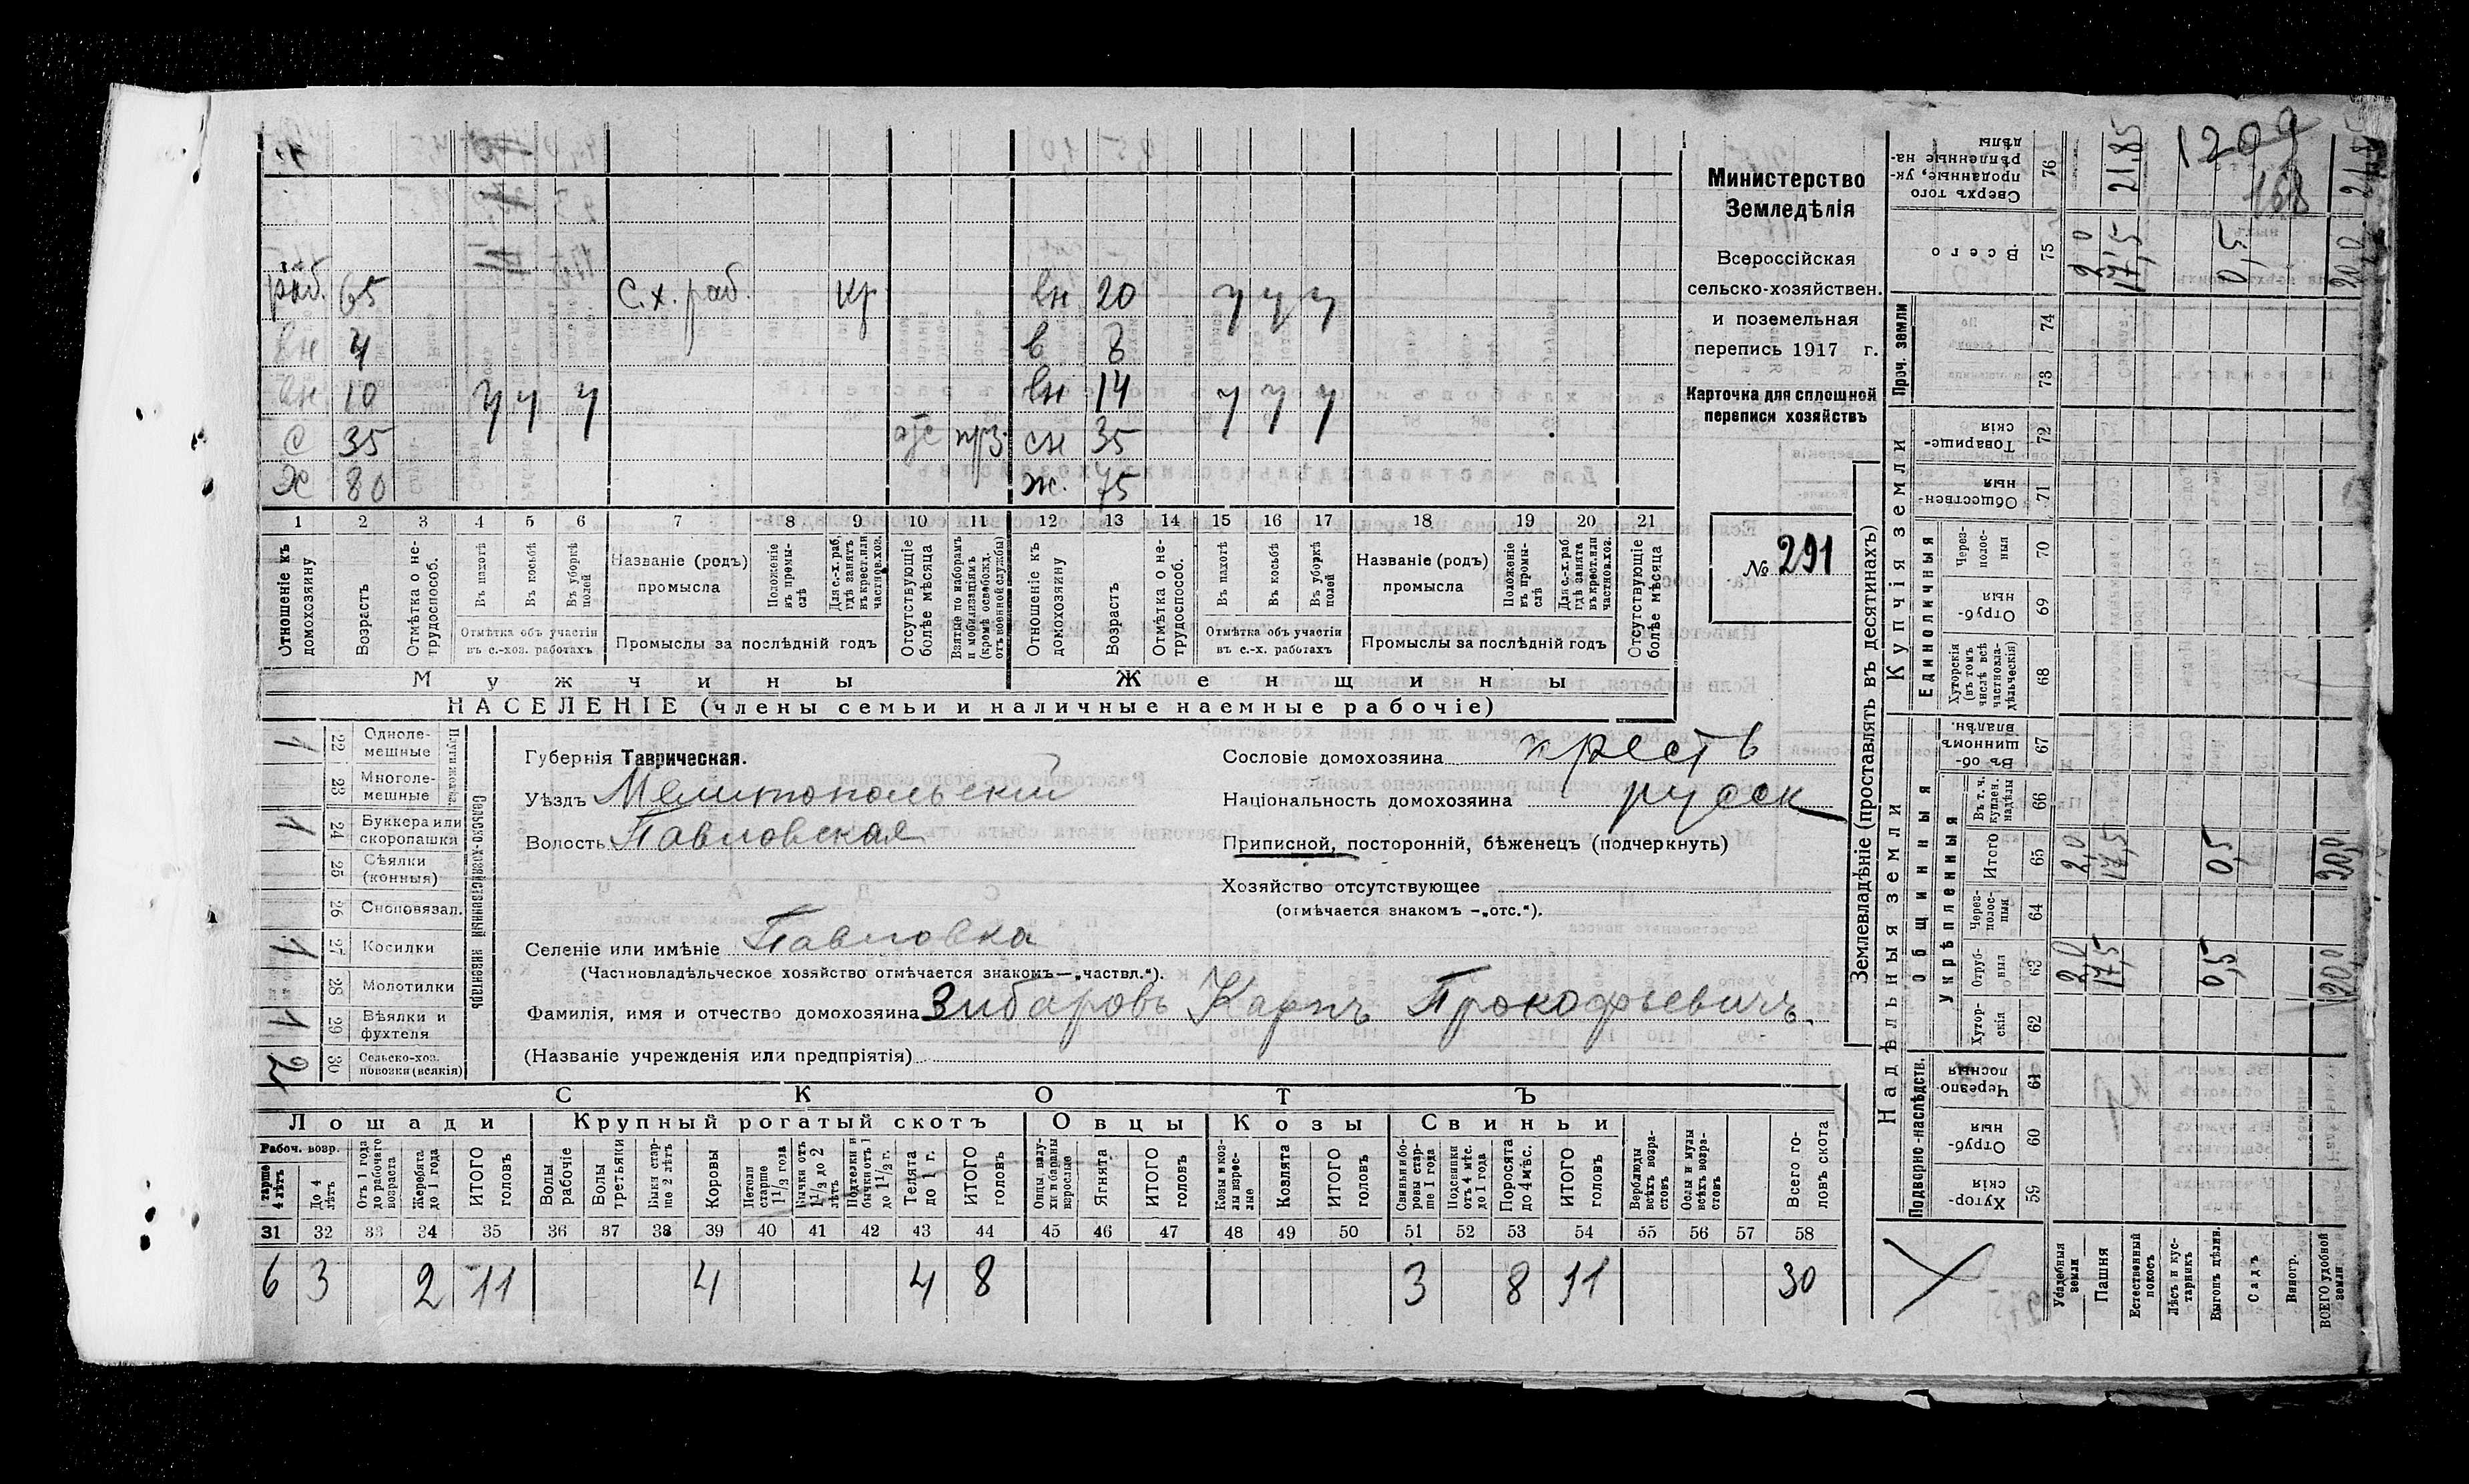 раб. 65 С.х. раб. кр вн 20 у у у
вн 4 в 8
вн 10 у у у вн 14 у у у
с 35 отс прз. сн 35
Х 80 ж. 75
1 2 3 4 5 6 7 8 9 10 11 12 13 14 15 16 17 18 19 20 21
Отношеніе къ домохозяину
Возрастъ
Отмѣтка о не-
трудоспособ.
Въ пахотѣ
Въ косьбѣ
Въ уборкѣ полей
Отмѣтка объ участіи
въ с.-хоз. работахъ
Названіе (родъ)
промысла
Положеніе въ промы-
слѣ
Для с.-х. раб.
гдѣ занятъ
въ крест. или
частнов. хоз.
Промыслы за послѣдній годъ
Отсутствующіе
болѣе мѣсяца
Взятые по наборамъ
и мобилизаціямъ
(кромѣ освобожд.
отъ военной службы)
Отношеніе къ
домохозяину
Возрастъ
Отмѣтка о не-
трудоспособ.
Въ пахотѣ
Въ косьбѣ
Въ уборкѣ полей
Отмѣтка объ участіи
въ с.-х. работахъ
Названіе (родъ)
промысла
Положеніе
въ промы-
слѣ
Для с.-х. раб.
гдѣ занята
въ крест. или
частнов. хоз.
Промыслы за послѣдній годъ
Отсутствующіе
болѣе мѣсяца
Мужчины Женщины
НАСЕЛЕНІЕ (члены семьи и наличные наемные рабочіе)
Министерство
Земледѣлія
Всероссійская
сельско-хозяйствен.
и поземельная
перепись 1917 г.
Карточка для сплошной
переписи хозяйствъ
№ 291
1 22 Одноле-
мешные
23 Многоле-
мешные
1 24 Буккера или
скоропашки
25 Сѣялки
(конныя)
26 Сноповязал.
1 27 Косилки
28 Молотилки
1 29 Вѣялки и
фухтеля
2 30 Сельско-хоз.
повозки (всякія)
Сельско-хозяйственный инвентарь
Губернія Таврическая.
Уѣздъ Мелитопольскій
Волость Павловская
Сословіе домохозяина крестъ
Національность домохозяина русск
Приписной, посторонній, бѣженецъ (подчеркнуть)
Хозяйство отсутствующее
(отмѣчается знакомъ —„отс.“).
Селеніе или имѣніе Павловка
(Частновладѣльческое хозяйство отмѣчается знакомъ—„частвл.“).
Фамилія, имя и отчество домохозяина Зибаровъ Карпъ Прокофьевичъ.
(Названіе учрежденія или предпріятія)
СКОТЪ
Лошади Крупный рогатый скотъ Овцы Козы Свиньи
Рабоч. возр.
старше
4 лѣтъ
До 4
лѣтъ
Отъ 1 года
до рабочаго
возраста
Жеребята
до 1 года
ИТОГО
головъ
Волы
рабочіе
Волы
третьяки
Быки стар-
ше 2 лѣтъ
Коровы
Нетели
старше
1 1/2 года
Бычки отъ
1 1/2 до 2
лѣтъ
Подтелки и
бычки отъ 1
до 1 1/2 г.
Телята
до 1 г.
ИТОГО
головъ
Овцы, валу-
хи и бараны
взрослые
Ягнята
ИТОГО
головъ
Козы и коз-
лы взрос-
лые
Козлята
ИТОГО
головъ
Свиньи и бо-
ровы стар-
ше 1 года
Подсвинки
отъ 4 мѣс.
до 1 года
Поросята
до 4 мѣс.
ИТОГО
головъ
Верблюды
всѣхъ возра-
стовъ
Ослы и мулы
всѣхъ возра-
стовъ
Всего го-
ловъ скота
31 32 33 34 35 36 37 38 39 40 41 42 43 44 45 46 47 48 49 50 51 52 53 54 55 56 57 58
6 3 2 11 4 4 8 3 8 11 30
Землевладѣніе (проставлять въ десятинахъ)
Купчія земли
Проч. земли
Единоличныя
Надѣльныя земли
Общинныя
Укрѣпленныя
Подворно-наслѣдств.
Сверхъ того
проданные, ук-
рѣпленные на-
дѣлы
76 21.85 21.85
1209
168
Всего 75 2,0 17,5 0,5 20,0
74
73
Товарище-
скія 72
Обществен-
ныя 71
Через-
полос-
ныя 70
Отруб-
ныя 69
Хуторскія
(въ томъ
числѣ всѣ
частновла-
дѣльческія) 68
Въ об-
щинномъ
владѣн. 67
Въ т. ч.
куплен.
надѣлы 66
Итого 65 2,0 17,5 0,5 20,0
Через-
полос-
ныя 64
Отруб-
ныя 63 2,0 17,5 0,5 20,0
Хутор-
скія 62
Черезпо-
лосныя 61
Отруб-
ныя 60
Хутор-
скія 59
Усадебныя
земли
Пашня
Естественный
покосъ
Лѣсъ и кус-
тарникъ
Выгонъ цѣлин.
Садъ
Виногр.
ВСЕГО удобной
земли